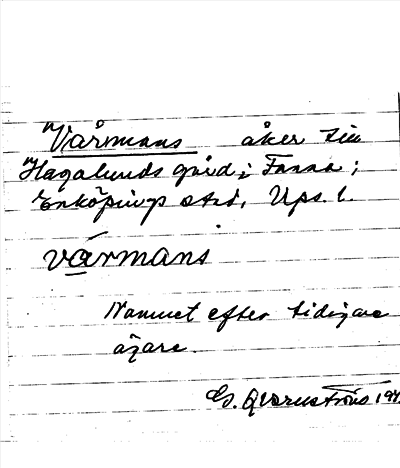 Vårmans åker till
Hagalunds gård i Fanna;
Enköpings stad, Ups. l.
vårmans
Namnet efter tidigare
ägare.
G. Qvarnström